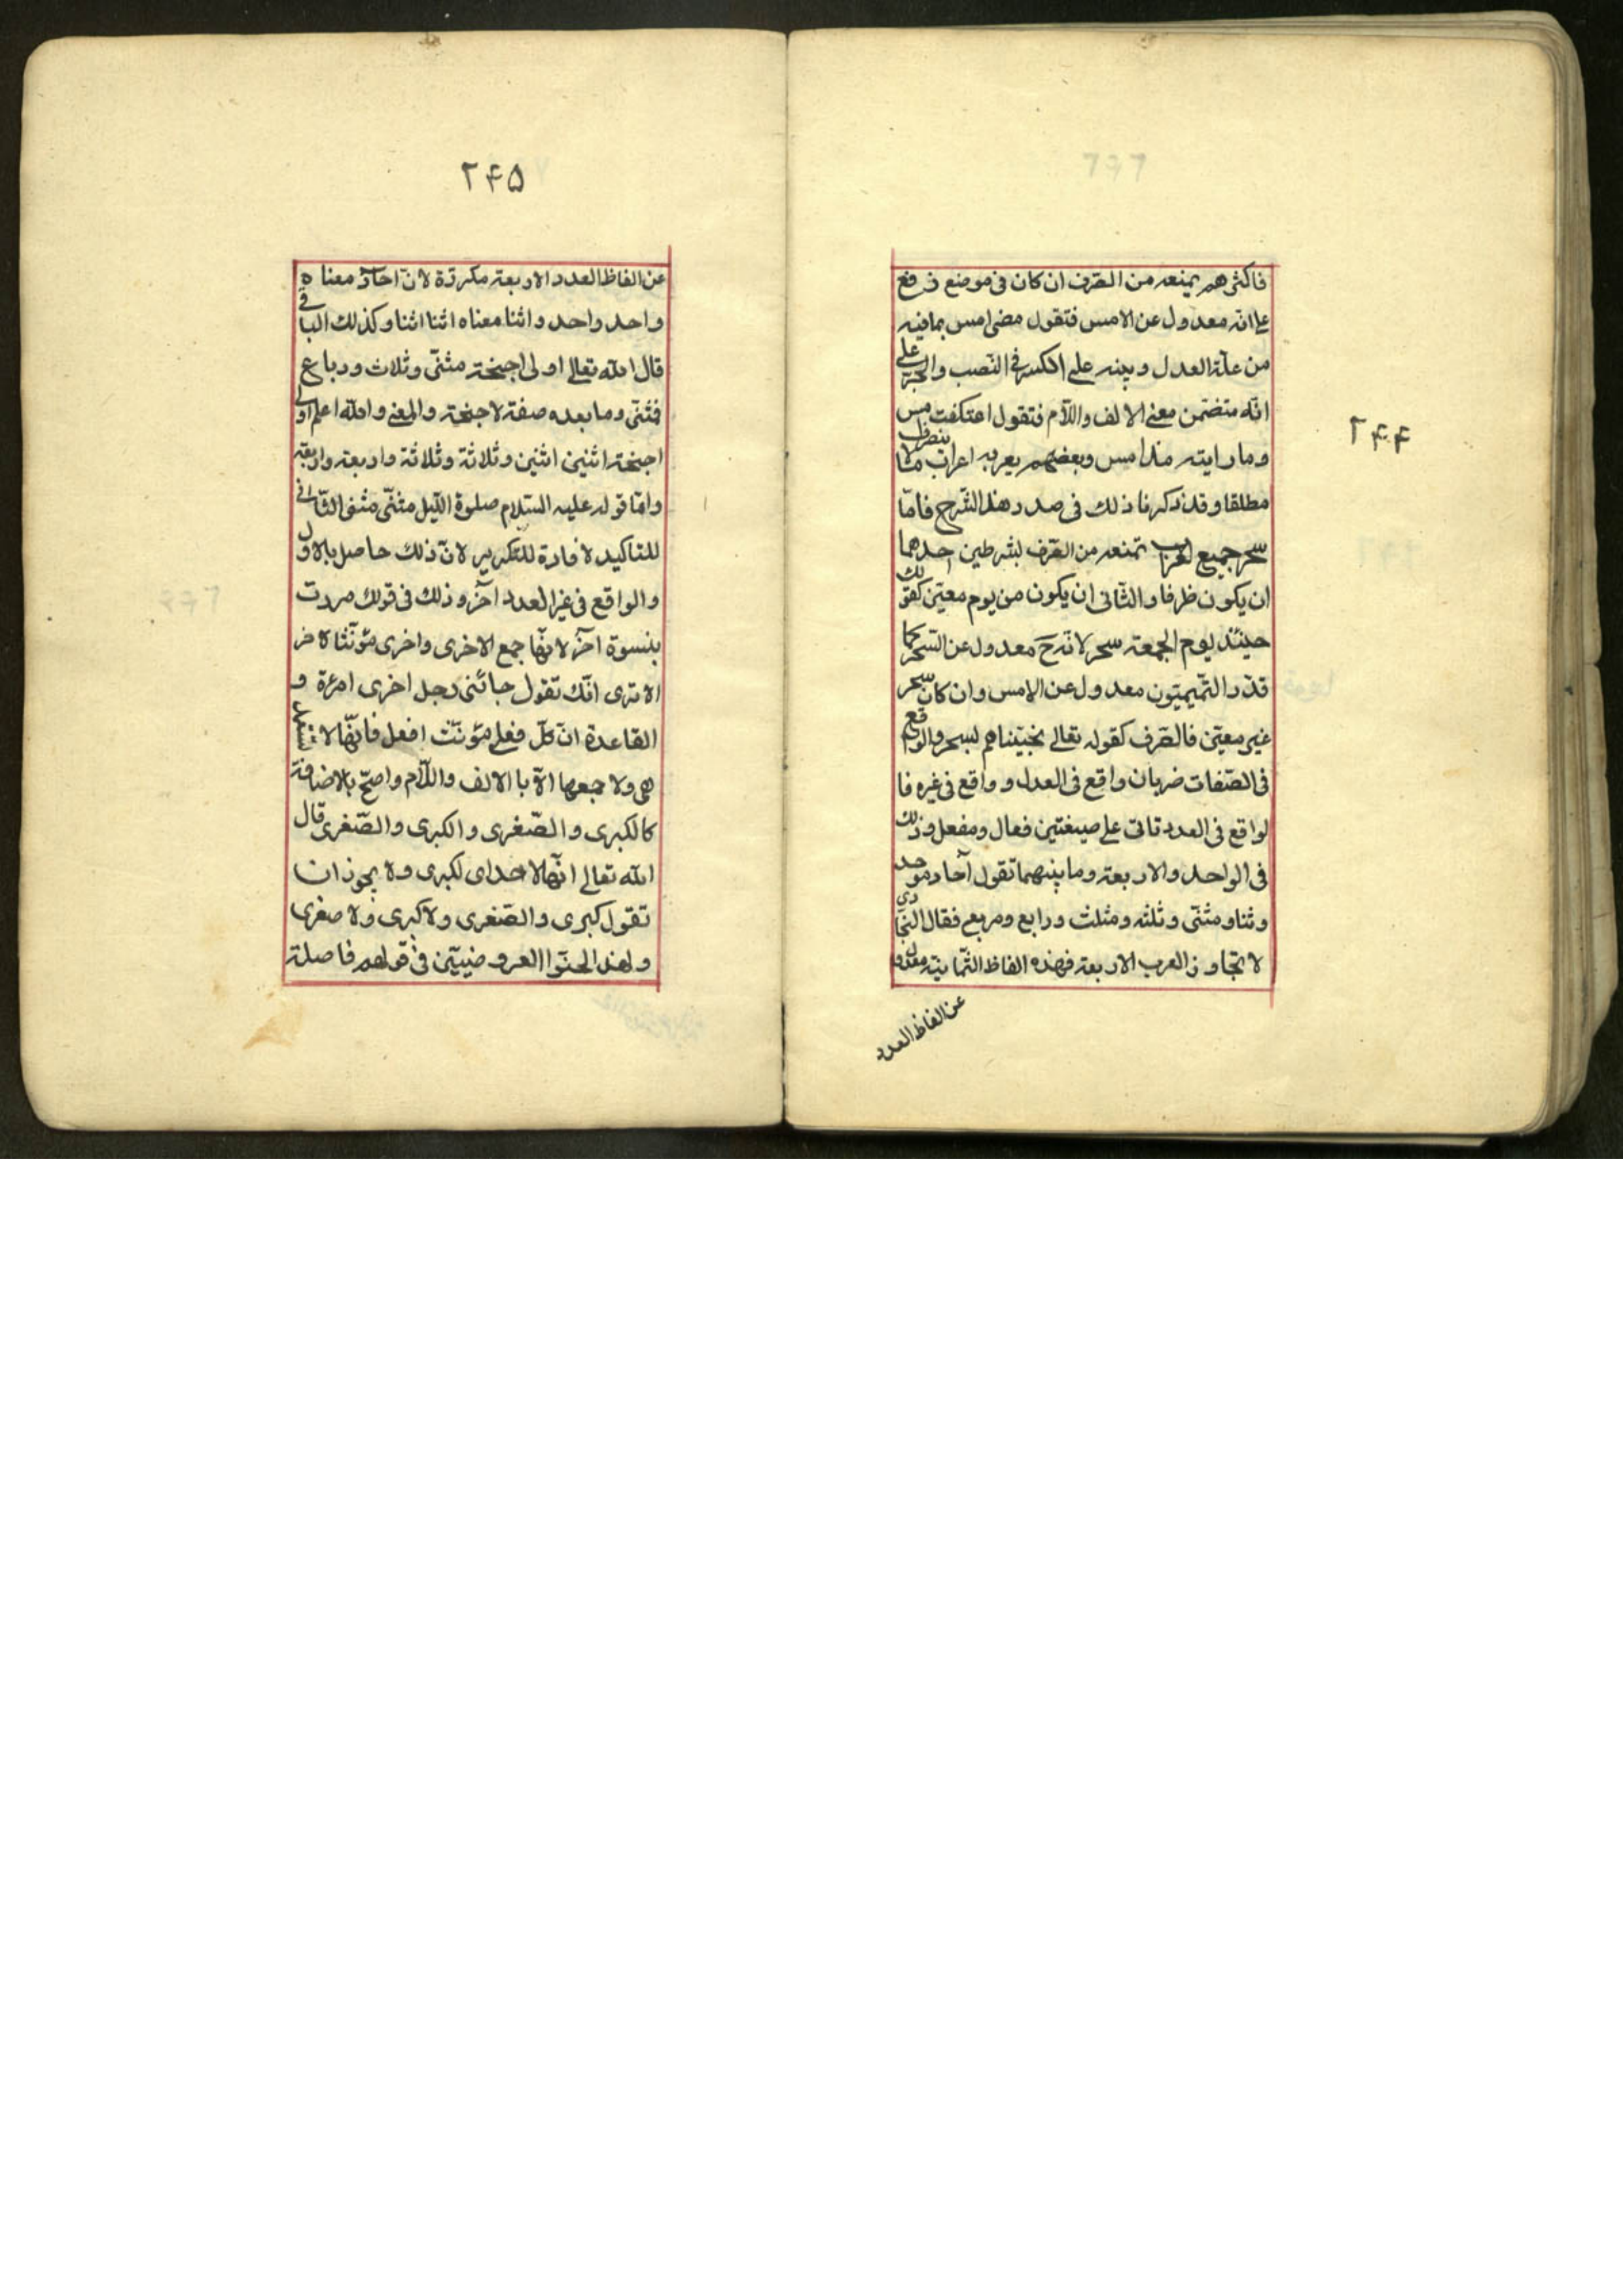 ۲۴۴
فاكثرهم يمنعه من الصرف ان كان فى موضع رفع
على انه معدول عن الامس فتقول مضى امس بما فيه
من علة العدل ويبنه على الكسر فى النصب والجر على
انه متضمن معنى الالف واللام فتقول اعتكفت امس
وما رايته مذ امس وبعضهم يعربه اعراب ما لا ينصرف
مطلقا وقد ذكرنا ذلك فى صدر هذا الشرح فامّا
سحر جميع العرب تمنعه من الصرف بشرطين احدهما
ان يكون ظرفا والثانى ان يكون من يوم معيّن كقولك
حينئذ يوم الجمعة سحر لانه ح معدول عن السحر كما
قدّر التميميّون معدول عن الامس وان كان سحر
غير معيّن فالصرف كقوله تعالى نجيّناهم بسحر والواقع
فى الصّفات ضربان واقع فى العدد و واقع فى غيره فا
لواقع فى العدد تاتى على صيغتين فعال ومفعل وذلك
فى الواحد والاربعة وما بينهما تقول آحاد موحد
وثنا ومثنى وثلثه ومثلث ورابع ومربع فقال النجّارى
لا تجاوز العرب الاربعة فهذه الفاظ الثمانية معدولة
عن الفاظ العدد
۲۴۵
عن الفاظ العدد الاربعة مكررة لانّ احاد معناه
واحد واحد واثنا معناه اثنا اثنا وكذلك الباقى
قال الله تعالى اولى اجنحة مثنى وثلاث ورباع
فمثنى وما بعده صفة لاجنحة والمعنى والله اعلم اولى
اجنحة اثنين اثنين وثلاثة وثلاثة واربعة واربعة
وامّا قوله عليه السّلام صلوة اللّيل مثنّى مثنى الثّانى
للتاكيد لا فادة للتكرير لانّ ذلك حاصل بالاول
والواقع فى غير العدد آخر وذلك فى قولك مررت
بنسوة اخر لانّها جمع الاخرى واخرى مؤنّثا لاخر
الا ترى انّك تقول جائنى رجل اخرى امرئة و
القاعدة انّ كلّ فعلى مؤنّث افعل فانّها لا تستعمل
هى ولا جمعها الّا با الالف واللّام واصحّ بالاضافة
كالكبرى والصّغرى والكبرى والصّغرى قال
الله تعالى انّها لاحداى لكبرى ولا يجوز ان
تقول كبرى والصّغرى ولا كبرى ولا صغرى
ولهذا لحنّوا العروضييّن فى قولهم فاصلة